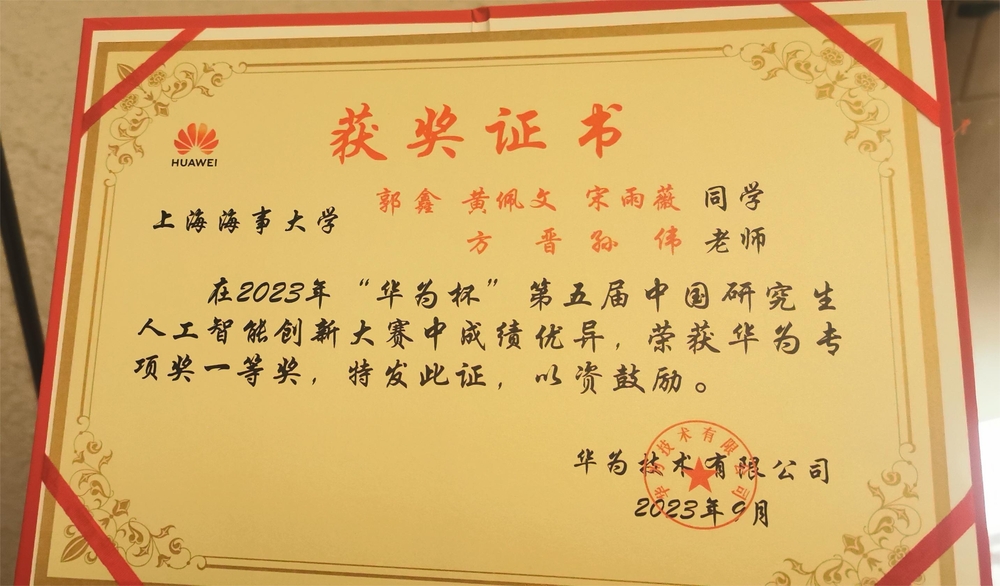 HUAWEI
获奖证书
郭鑫 黄佩文 宋雨薇 同学
上海海事大学
方晋 孙伟 老师
在2023年“华为杯”第五届中国研究生
人工智能创新大赛中成绩优异，荣获华为专
项奖一等奖，特发此证，以资鼓励。
华为技术有限公司
2023年9月
华为技术有限公司